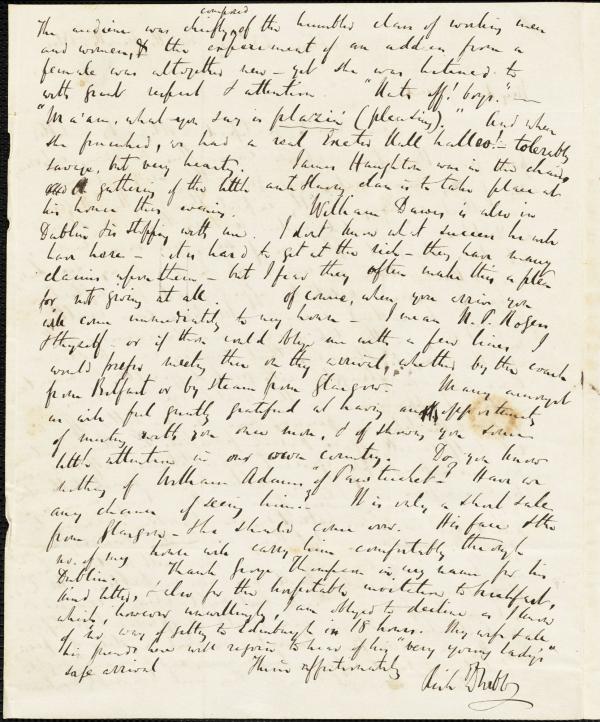 composed
The audience was chiefly of the humbler class of working men
and women, & the experiment of an address from a
female was altogether new - yet she was listened to
with great respect & attention. "Hats off! boys." -
"Ma'am, what you say is plazin (pleasing)." And when
she finished, we had a real Exeter Hall halloo! - tolerably
savage, but very hearty. James Haughton was in the chair,
A gathering of the little anti slavery clan is to take place at
his house this evening. William Dawes is also in
Dublin & is stopping with me. I dont know what success he will
have here - it is hard to get at the rich - they have many
claims upon them - but I fear they often make this a plea
for not giving at all. Of course, when you arrive you
will come immediately to my house - I mean N. P. Rogers
& thyself - or if thou could oblige me with a few lines I
would prefer meeting thee on thy arrival, whether by the coach
from Belfast or by steam from Glasgow. Many amongst
us will feel greatly gratified at having an opportunity
of meeting with you once more, & of showing you some
little attention in our own country. Do you know
nothing of William Adams of Pawtucket? Have we
any chance of seeing him? It is only a short sail
from Glasgow - & he should come over. His face & the
no. of my house will carry him comfortably through
Dublin. Thank George Thompson in my name for his
kind letter, & also for the hospitable invitation to breakfast,
which, however unwillingly, I am obliged to decline as I know
of no way of getting to Edinburgh in 18 hours. My wife &
his friends here will rejoice to hear of his "very young lady's"
safe arrival Thine affectionately
Richd D Webb